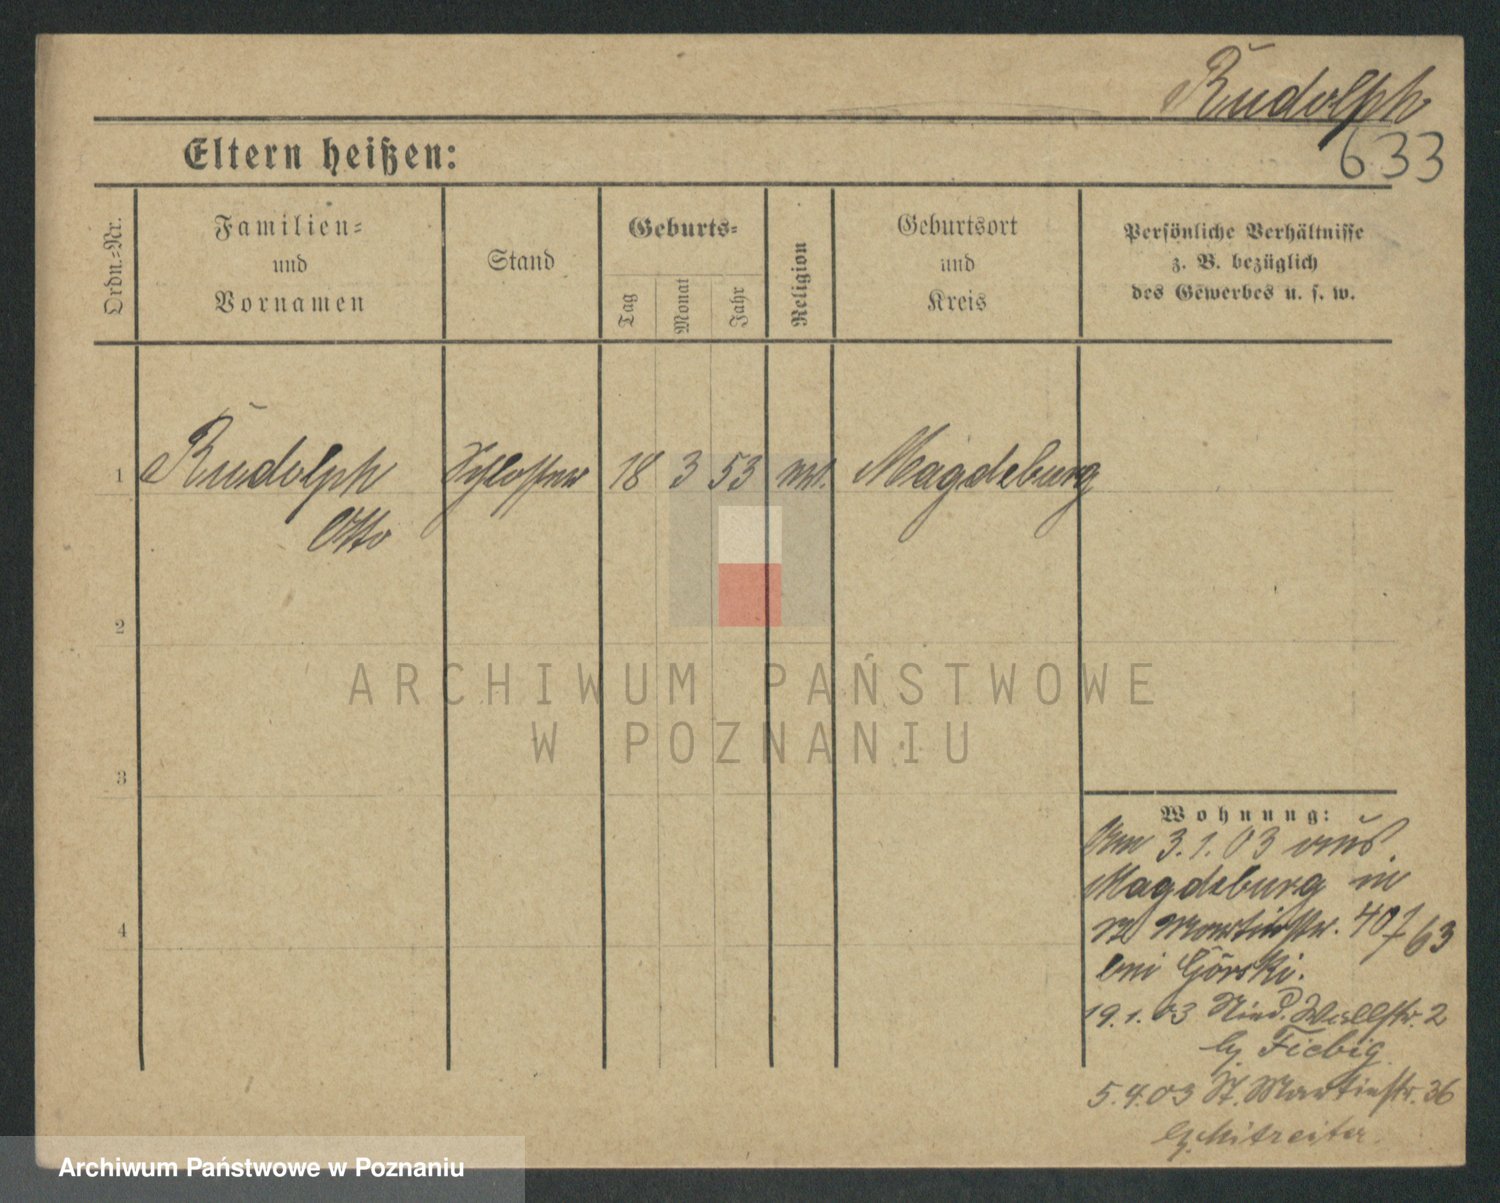 Rudolph
633
Eltern heißen:
Ordn.-Nr.
Familien-
und
Vornamen
Stand
Geburts-
Tag
Monat
Jahr
Religion
Geburtsort
und
Kreis
Persönliche Verhältnisse
z. B. bezüglich
des Gewerbes u. s. w.
1 Rudolph Schlosser 18 3 53 Magdeburg
Otto
2
3
4
ARCHIWUM PAŃSTWOWE
W POZNANIU
Wohnung:
3.1.03 aus
Magdeburg in
St Martinstr. 40/63
bei Górski.
19.1.03 Nied. Wallstr. 2
b/ Fiebig
5.4.03 St. Martinstr. 36
Archiwum Państwowe w Poznaniu